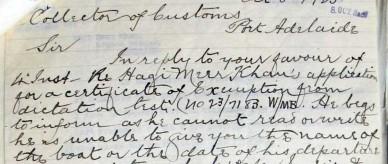 Collector of Customs
8 OCT
Port Adelaide
Sir
In reply to your favour of
4 Inst. Re Hagi Meer Khan's application
for a certificate of Exemption from
dictation test. (No 23/7183. WMB. He begs
to inform as he cannot read or write
he is unable to give you the name of
the boat or the date of his departure